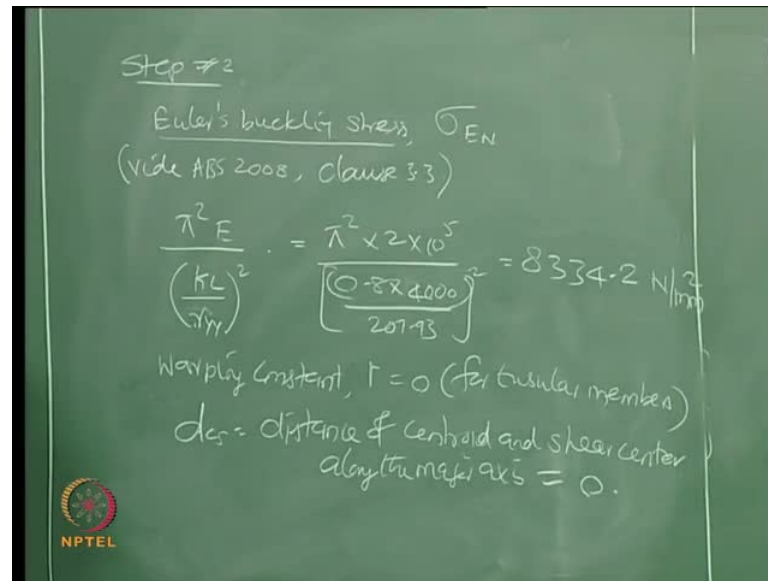 Step #2
Euler's buckling stress, σ_EN
(vide ABS 2008, clause 3.3)
π² E / (KL / r_yy)² = π² × 2×10⁵ / [(0.8×4000) / 207.93]² = 8334.2 N/mm²
Warping constant, Γ = 0 (for tubular members)
dcs = distance of centroid and shear center
along the major axis = 0.
NPTEL